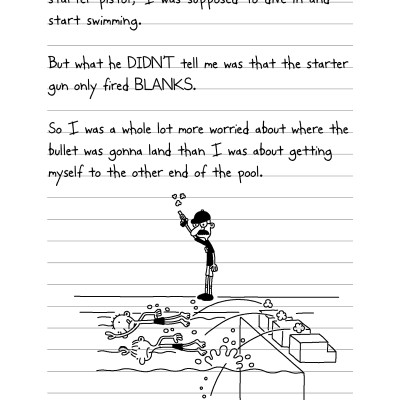 starter pistol, I was supposed to dive in and
start swimming.
But what he DIDN'T tell me was that the starter
gun only fired BLANKS.
So I was a whole lot more worried about where the
bullet was gonna land than I was about getting
myself to the other end of the pool.